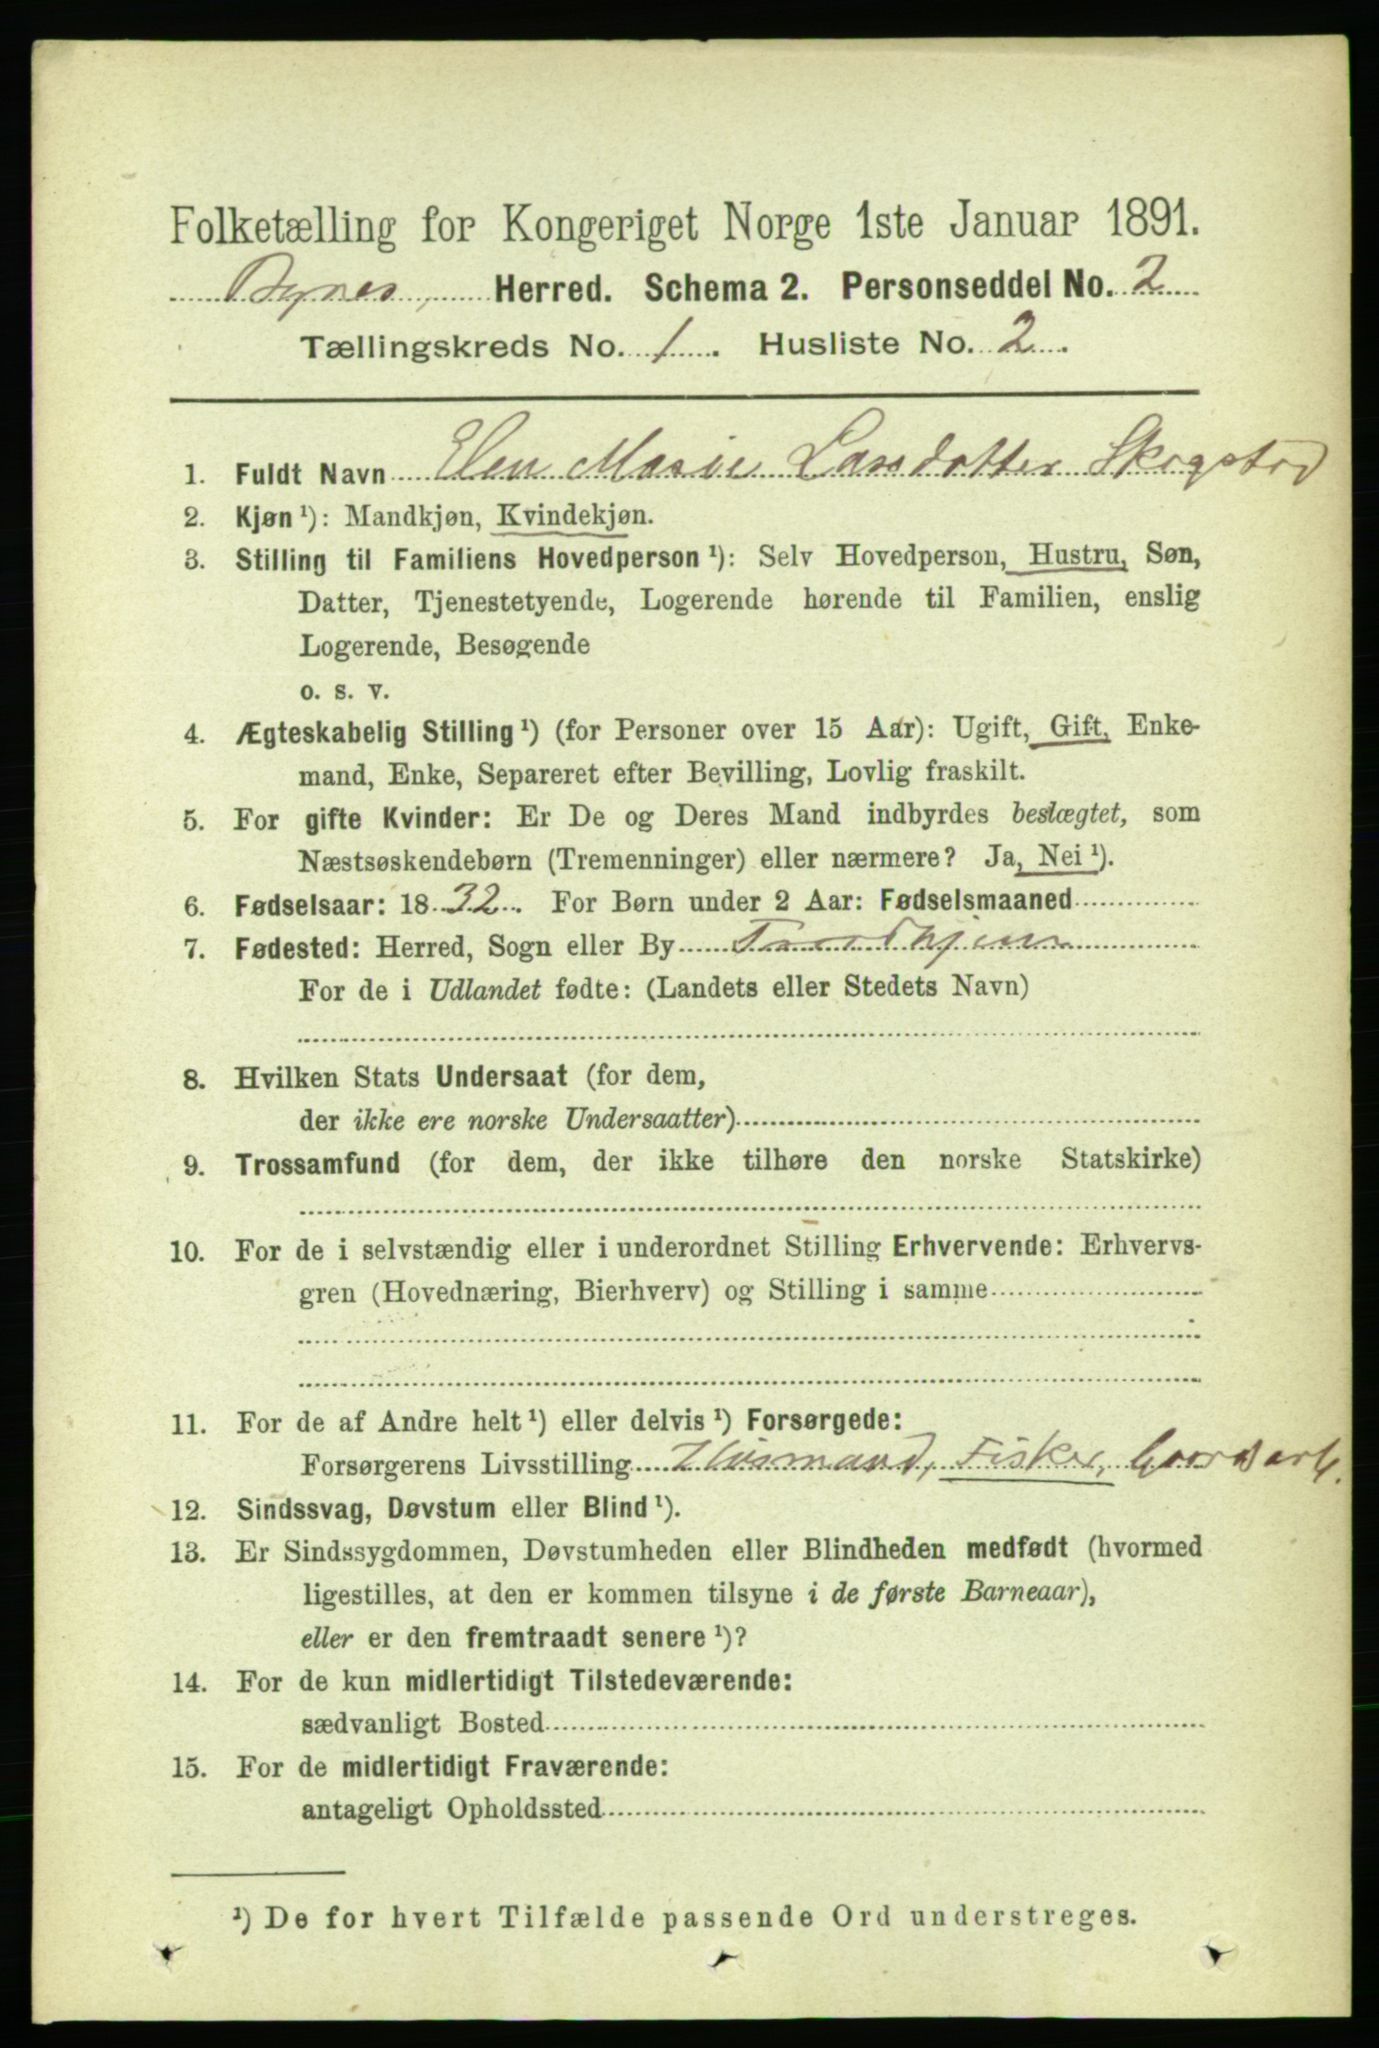 Folketælling for Kongeriget Norge 1ste Januar 1891.
Bynes, Herred. Schema 2. Personseddel No. 2
Tællingskreds No. 1. Husliste No. 2.
1. Fuldt Navn Elen Marie Larsdatter Skogstad
2. Kjøn ¹): Mandkjøn, Kvindekjøn.
3. Stilling til Familiens Hovedperson ¹): Selv Hovedperson, Hustru, Søn,
Datter, Tjenestetyende, Logerende hørende til Familien, enslig
Logerende, Besøgende
o. s. v.
4. Ægteskabelig Stilling ¹) (for Personer over 15 Aar): Ugift, Gift, Enke-
mand, Enke, Separeret efter Bevilling, Lovlig fraskilt.
5. For gifte Kvinder: Er De og Deres Mand indbyrdes beslægtet, som
Næstsøskendebørn (Tremenninger) eller nærmere? Ja, Nei ¹).
6. Fødselsaar: 1832. For Børn under 2 Aar: Fødselsmaaned
7. Fødested: Herred, Sogn eller By Trondhjem
For de i Udlandet fødte: (Landets eller Stedets Navn)
8. Hvilken Stats Undersaat (for dem,
der ikke ere norske Undersaatter)
9. Trossamfund (for dem, der ikke tilhøre den norske Statskirke)
10. For de i selvstændig eller i underordnet Stilling Erhvervende: Erhvervs-
gren (Hovednæring, Bierhverv) og Stilling i samme
11. For de af Andre helt ¹) eller delvis ¹) Forsørgede:
Forsørgerens Livsstilling Husmand, Fisker, Gaardsarb.
12. Sindssvag, Døvstum eller Blind ¹).
13. Er Sindssygdommen, Døvstumheden eller Blindheden medfødt (hvormed
ligestilles, at den er kommen tilsyne i de første Barneaar),
eller er den fremtraadt senere ¹)?
14. For de kun midlertidigt Tilstedeværende:
sædvanligt Bosted
15. For de midlertidigt Fraværende:
antageligt Opholdssted
¹) De for hvert Tilfælde passende Ord understreges.